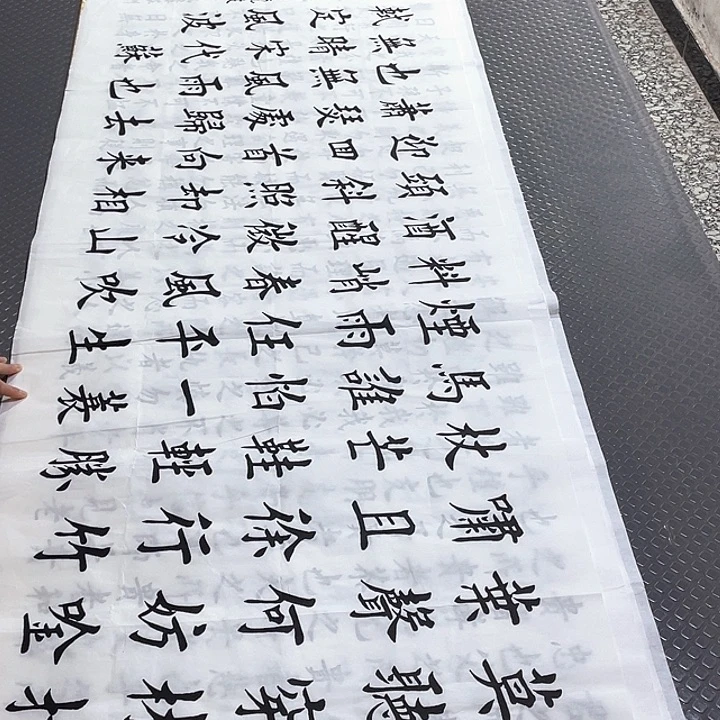 莫聽穿林打
葉聲何妨吟
嘯且徐行竹
杖芒鞋輕勝
馬誰怕一蓑
煙雨任平生
料峭春風吹
酒醒微冷山
頭斜照却相
迎回首向來
蕭瑟處歸去
也無風雨也
無晴宋代蘇
軾定風波